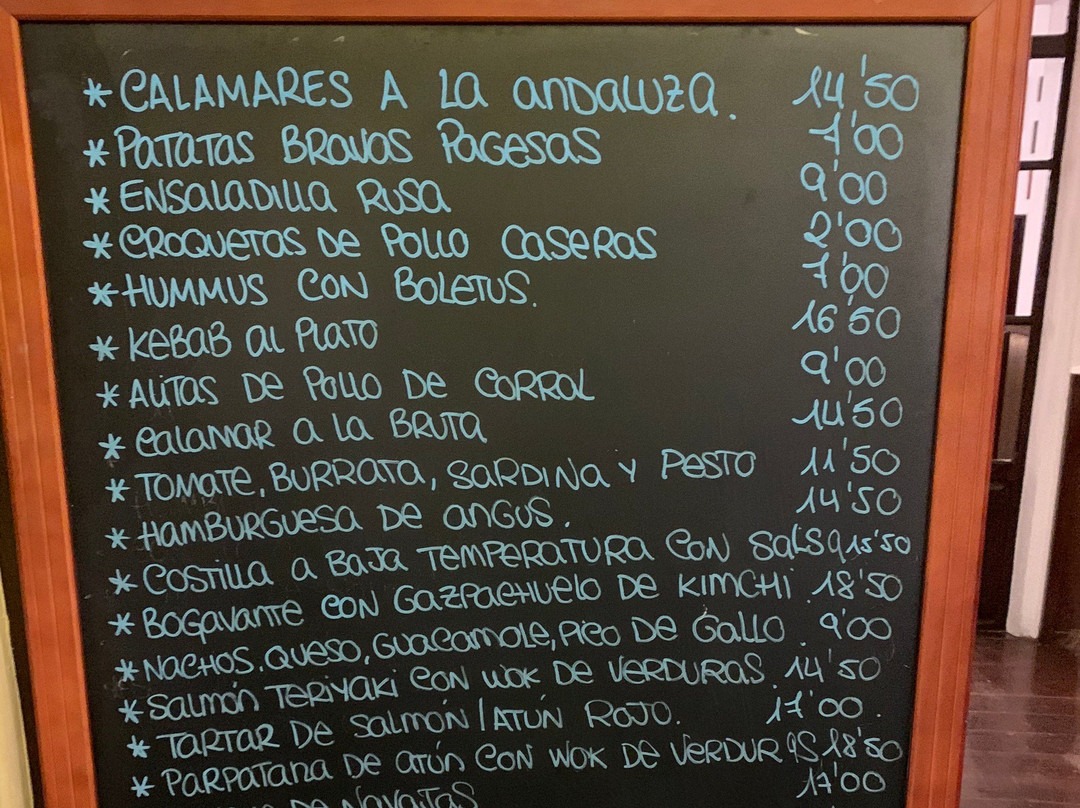 * CALAMARES A La anDaLuza. 14'50
* PaTaTas BRavas Pagesas 7'00
* ENSaLaDiLLa RUSa 9'00
* CROQUETas De PoLLo CaseRas 2'00
* HUMMUS CON BoLeTUS. 7'00
* KeBaB aL PLaTo 16'50
* ALiTas De PoLLo De CoRRaL 9'00
* CaLaMaR a La BRUTa 14'50
* ToMaTe, BURRaTa, SaRDiNa Y PesTo 11'50
* HaMBURGUesa De anGUS. 14'50
* CosTiLLa a BaJa TeMPeRaTURa CON SaLSa 15'50
* BoGavanTe CON GaZPacHUeLo De KiMCHi. 18'50
* NacHos, QUeso, GUacaMoLe, Pico De GaLLo. 9'00
* SaLMón TeRiYaKi CON WoK De VeRDURaS. 14'50
* TaRTaR De SaLMóN / ATÚN RoJo. 17'00.
* PaRPaTana De aTún CON WoK De VeRDURaS 18'50
De NavaJas 17'00